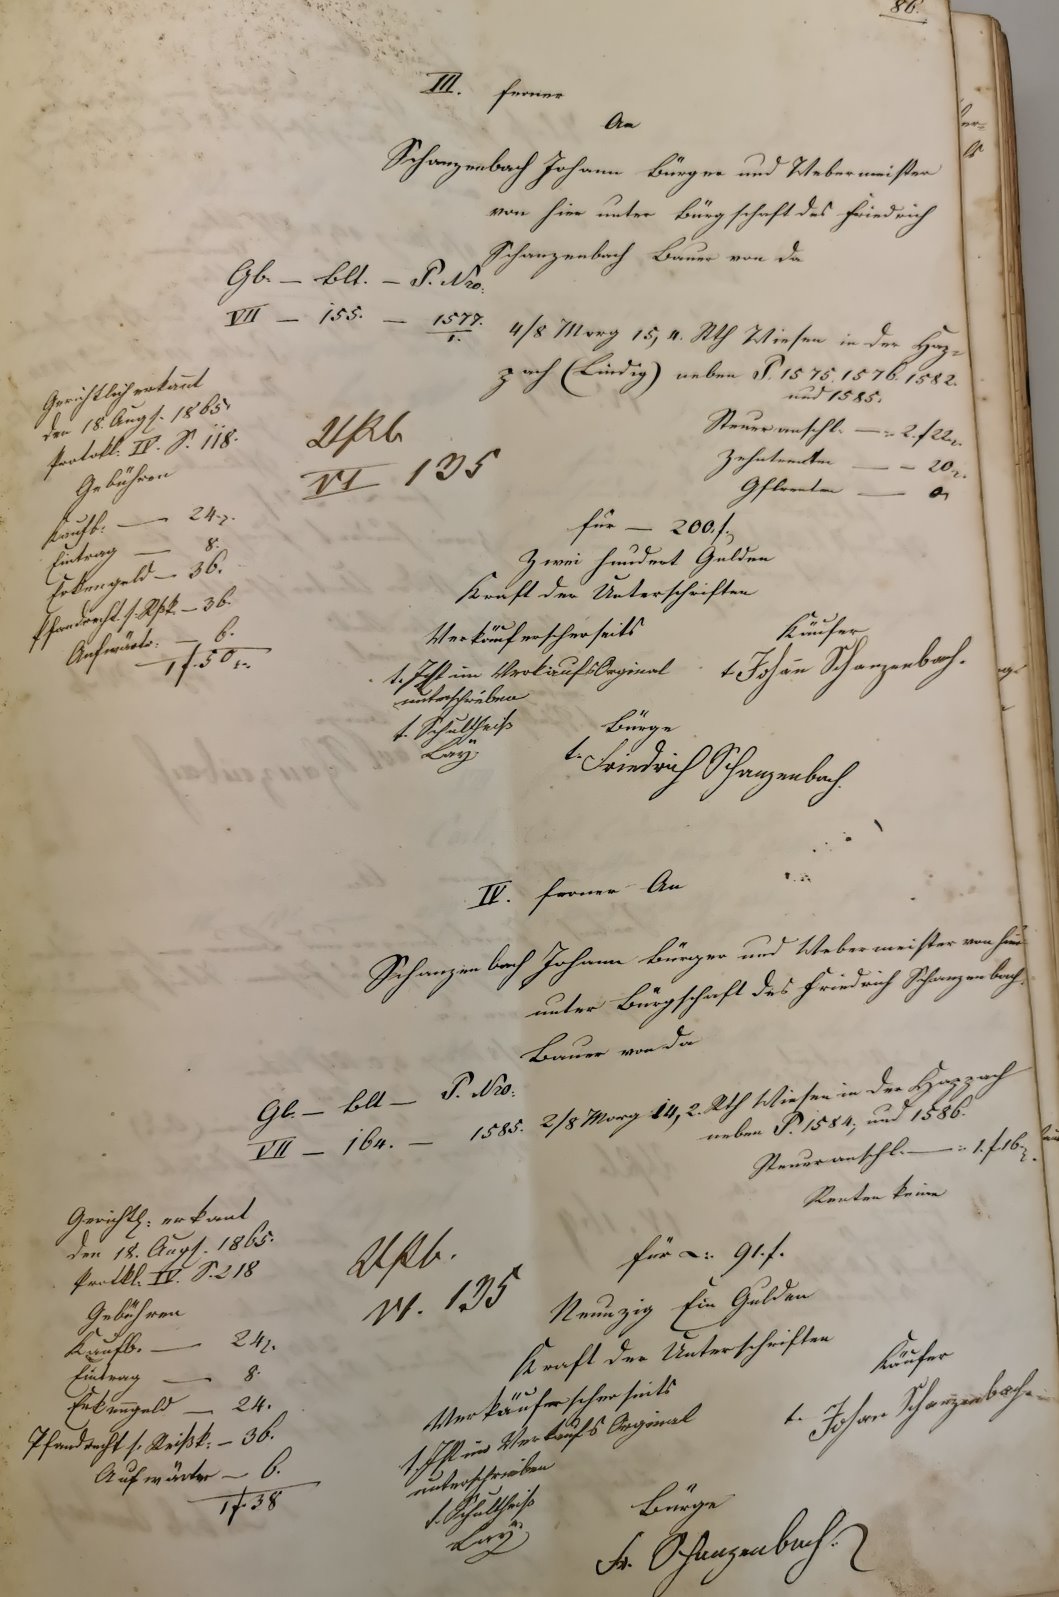 86.
III. ferner
An
Schanzenbach Johann Bürger und Webermeister
von hier unter Bürgschaft des Friedrich
Schanzenbach Bauer von da
Gb. — Blt. — P. Nro.
VII — 155. — 1577./1. 4/8 Morg 15,4. Rth Wiesen in der Haz=
zach (Lindig) neben P. 1575. 1576. 1582.
und 1585.
Steueranschl. — 2. f 22
Zehntrenten — — 20
Gflrenten — 0
Gerichtlich erkannt
den 18. Aug. 1865.
Protokl. IV. S. 118.
Gebühren
Kaufb. — 24
Eintrag — 8.
Erkenngeld — 36.
Pfandrecht s. Rßk. — 36.
Aufwärter. — 6.
1 f. 50
UPfb
VI 135
für — 200. f.
Zwei hundert Gulden
Kraft der Unterschriften
Verkäuferscherseits
t. Ist im Verkaufs Orginal
unterschrieben
t. Schultheiß
Lay
Käufer
t. Johann Schanzenbach.
Bürge
t. Friedrich Schanzenbach.
IV. ferner An
Schanzenbach Johann Bürger und Webermeister von hier
unter Bürgschaft des Friedrich Schanzenbach
Bauer von da
Gb. — Blt — P. Nro.
VII — 164. — 1585. 2/8 Morg 14,2. Rth Wiesen in der Hazzach
neben P. 1584, und 1586.
Steueranschl. — 1. f 16
Renten keine
Gerichtl. erkant
den 18. Aug. 1865.
Protkl. IV. S. 218
Gebühren
Kaufb. — 24
Eintrag — 8.
Erkenngeld — 24.
Pfandrecht s. Reißk. — 36.
Aufwärter — 6.
1 f. 38
UPfb.
VI. 135
für 91. f.
Neunzig Ein Gulden
Kraft der Unterschriften
Verkäuferscherseits
t. Ist im Verkaufs Orginal
unterschrieben
t. Schultheiß
Lay
Käufer
t. Johann Schanzenbach.
Bürge
Fr. Schanzenbach.